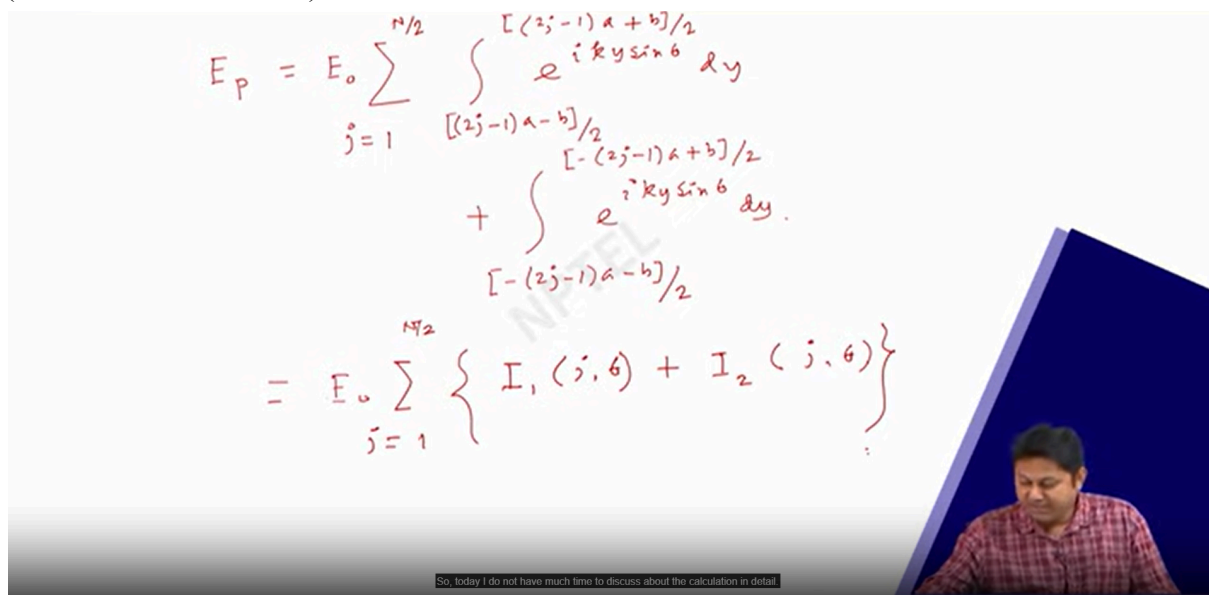 E_p = E_0 ∑_{j=1}^{N/2} ∫_{[(2j-1)a-b]/2}^{[(2j-1)a+b]/2} e^{ikysinθ} dy
+ ∫_{[-(2j-1)a-b]/2}^{[-(2j-1)a+b]/2} e^{ikysinθ} dy.
NPTEL
= E_0 ∑_{j=1}^{N/2} { I_1(j,θ) + I_2(j,θ) }
So, today I do not have much time to discuss about the calculation in detail.